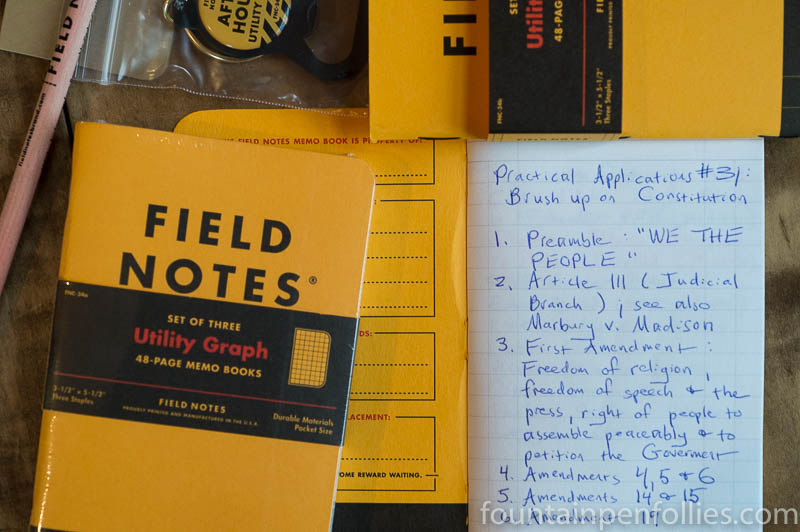 FIELD N
fieldnotesbrand.com
AFT
HOU
UTILITY
FI
SET
Utili
48-PAGE
FNC-34b
FIE
PROUDLY PRINTED
3-1/2" x 5-1/2"
Three Staples
FIELD NOTES
FIELD NOTES MEMO BOOK IS PROPERTY OF:
DS:
LACEMENT:
OME REWARD WAITING.
FIELD
NOTES®
FNC-34a
SET OF THREE
Utility Graph
48-PAGE MEMO BOOKS
3-1/2" x 5-1/2"
Three Staples
FIELD NOTES
PROUDLY PRINTED AND MANUFACTURED IN THE U.S.A.
Durable Materials
Pocket Size
Practical Applications #31:
Brush up on Constitution
1. Preamble: "WE THE
PEOPLE"
2. Article III (Judicial
Branch); see also
Marbury v. Madison
3. First Amendment:
Freedom of religion,
freedom of speech & the
press, right of people to
assemble peaceably & to
petition the Goverment
4. Amendments 4, 5 & 6
5. Amendments 14 & 15
6. Amendment 19
fountainpenfollies.com